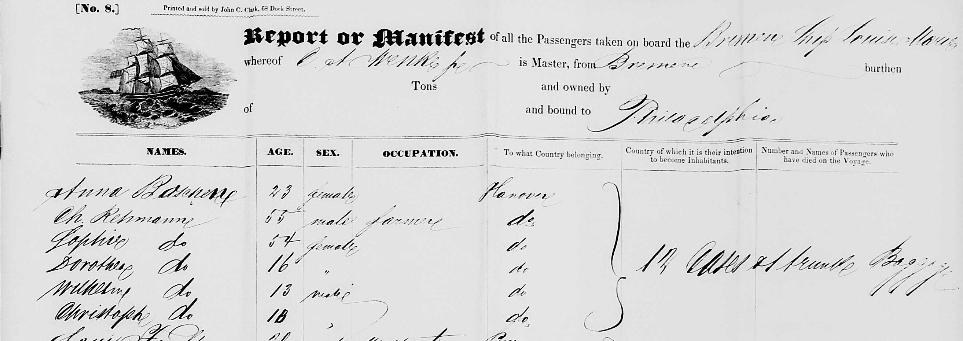 [No. 8.] Printed and sold by John C. Clark, 68 Dock Street.
Report or Manifest of all the Passengers taken on board the Bremen Ship Louise Marie
whereof is Master, from Bremen burthen
Tons and owned by
of and bound to Philadelphia.
NAMES. AGE. SEX. OCCUPATION. To what Country belonging. Country of which it is their intention to become Inhabitants. Number and Names of Passengers who have died on the Voyage.
Anna 23 female Hanover
Ch. Rehmann 55 male farmer do.
Sophie do 54 female do
Dorothea do 16 " do 12 Cases & trunks Baggage
do 13 male do
Christoph do 18 " do.